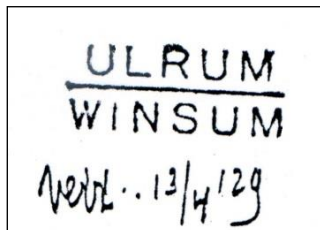 ULRUM
WINSUM
13/4 '29